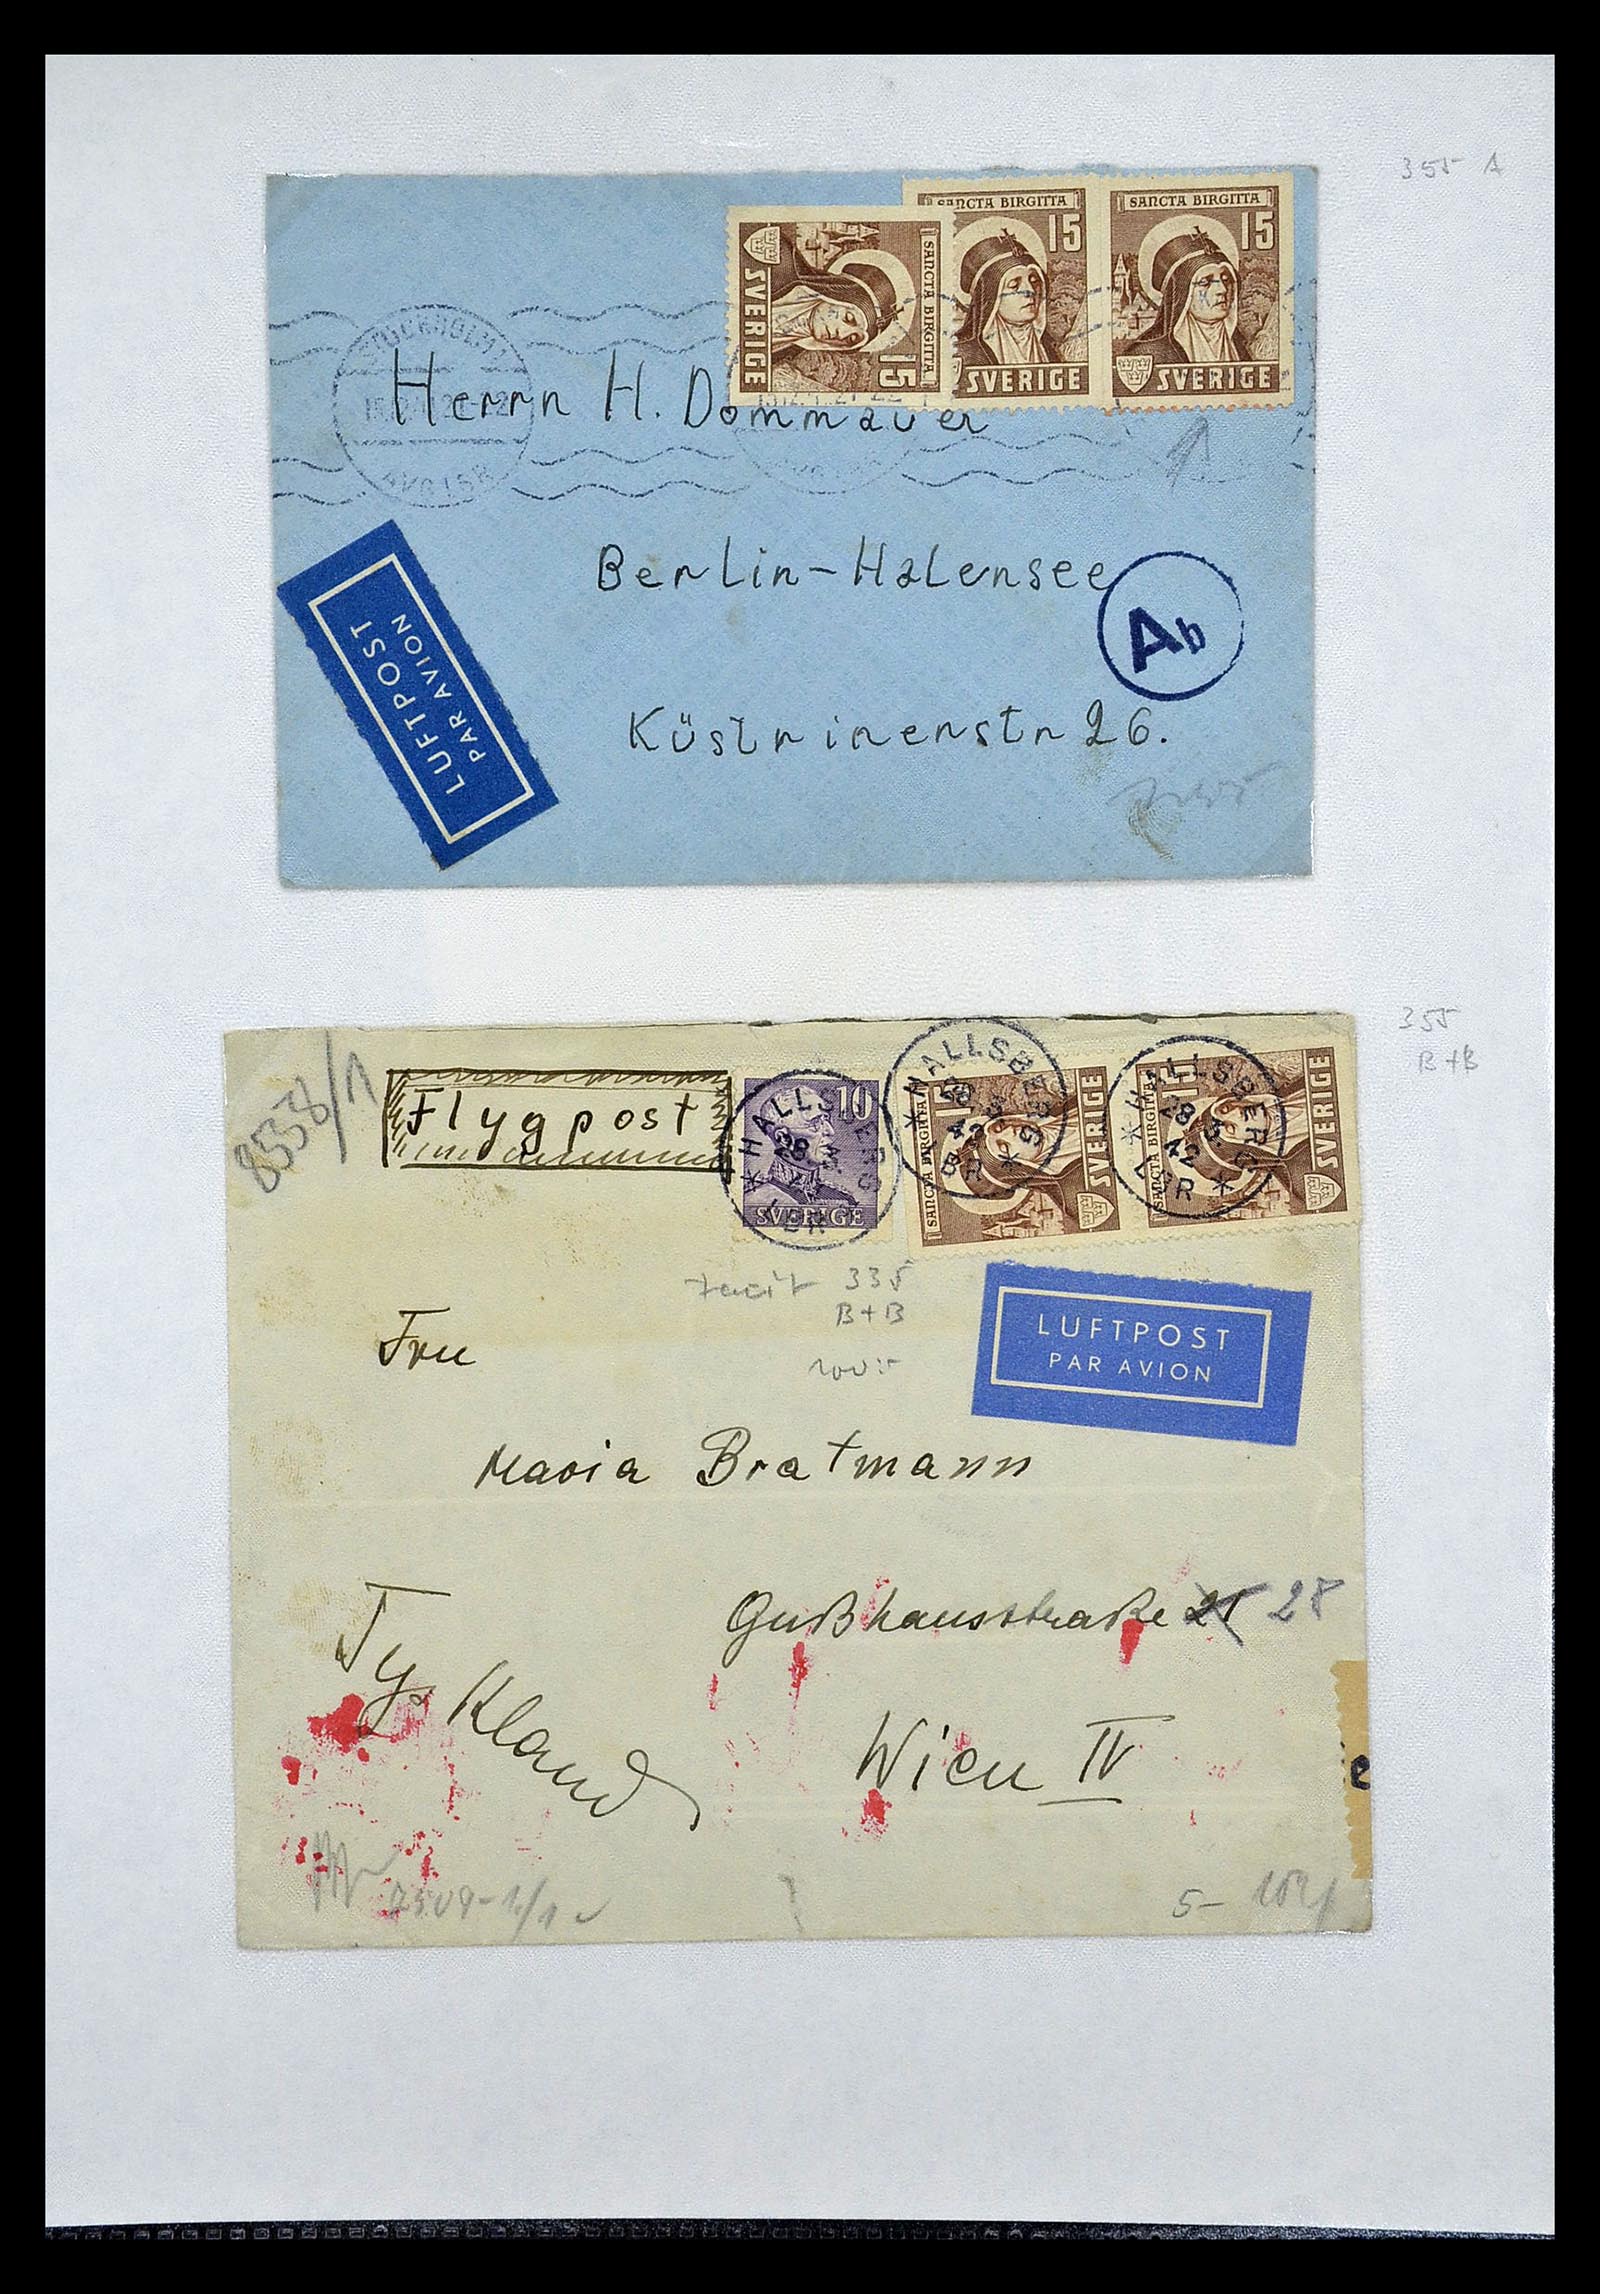 355 A
SANCTA BIRGITTA
15
SVERIGE
SANCTA BIRGITTA
15
SVERIGE
SANCTA BIRGITTA
15
SVERIGE
STOCKHOLM 1
AVGISK
Herrn H. Dommauer
Berlin-Halensee
Ab
Küstrinerstr 26.
LUFTPOST
PAR AVION
355
B+B
8558/1
Flygpost
10
SVERIGE
HALLSBERG
28
SANCTA BIRGITTA
15
SVERIGE
HALLSBERG
28
42
SANCTA BIRGITTA
15
SVERIGE
HALLSBERG
28
42
Facit 335
B+B
LUFTPOST
PAR AVION
Fru
Maria Bratmann
Gußhausstraße 28
Wien IV
Tyskland
e
5-